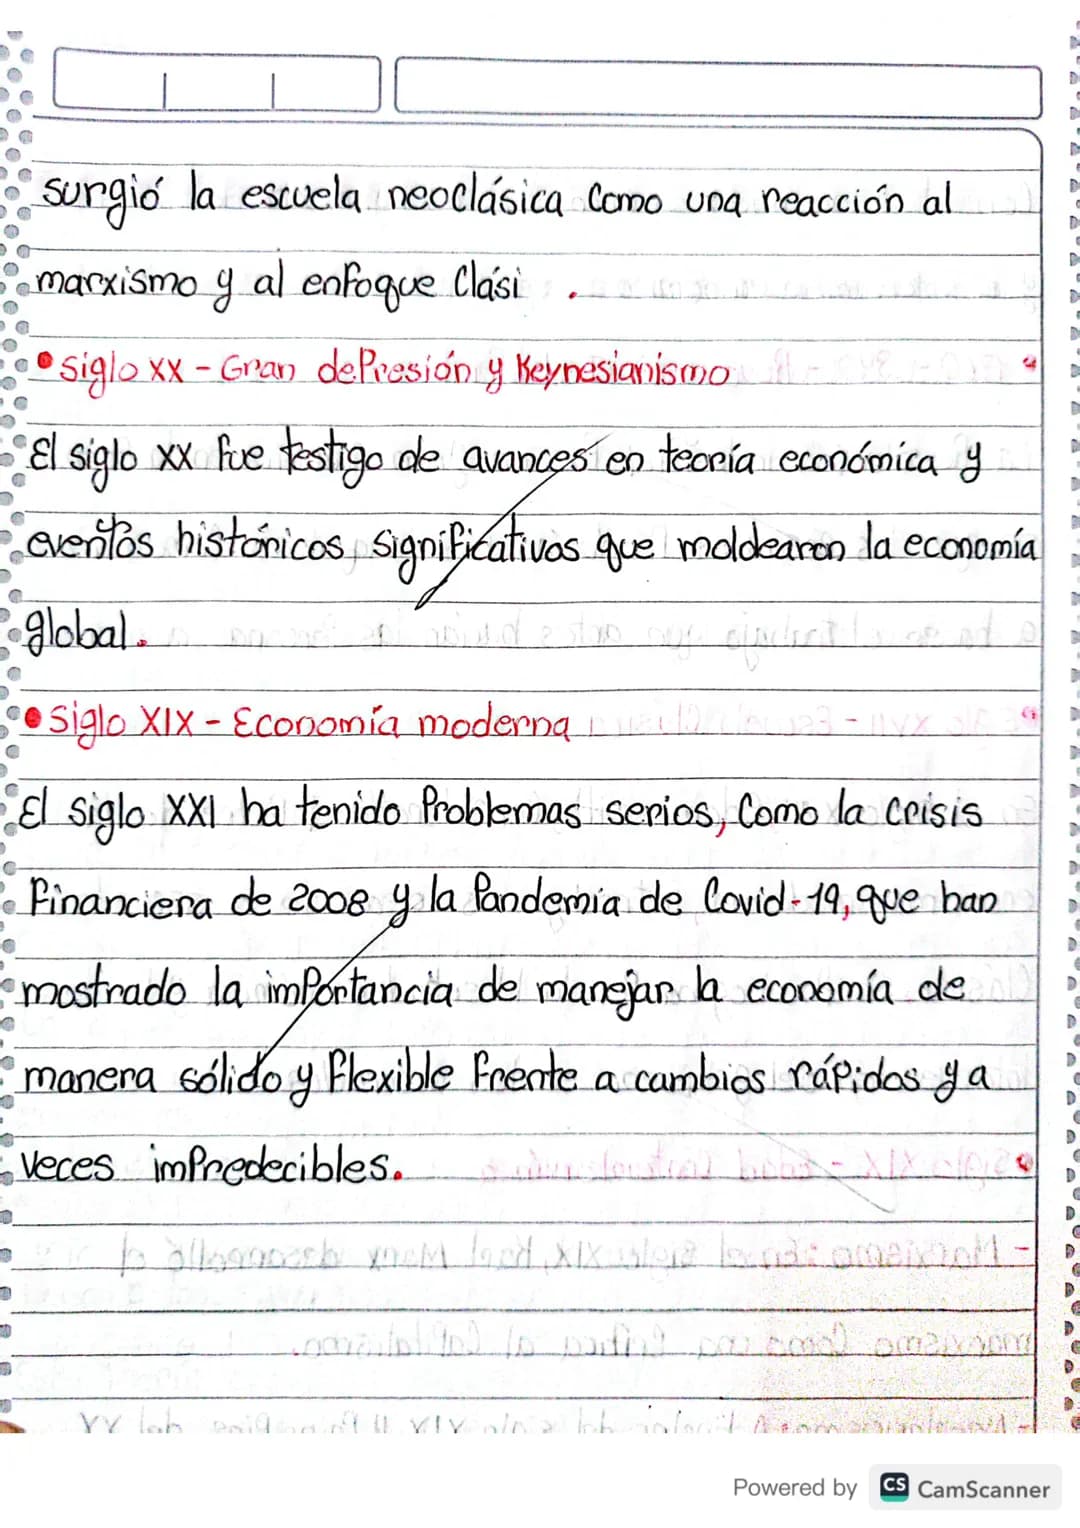 surgió la escuela neoclásica como una reacción al
marxismo y al enfoque clási .
• siglo XX - Gran depresión y Keynesianismo
El siglo XX fue testigo de avances en teoría económica y
eventos históricos significativos que moldearon la economía
global.
• Siglo XIX - Economía moderna
El siglo XXI ha tenido problemas serios, como la crisis
financiera de 2008 y la pandemia de Covid-19, que han
mostrado la importancia de manejar la economía de
manera sólido y flexible frente a cambios rápidos y a
veces impredecibles.
Powered by CS CamScanner